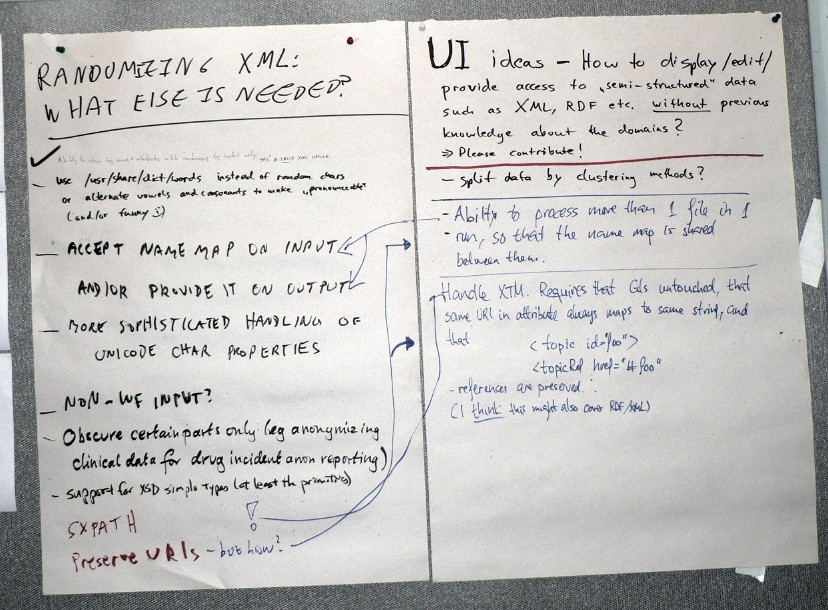 RANDOMIZING XML:
WHAT ELSE IS NEEDED?
✓
- use /usr/share/dict/words instead of random chars
or alternate vowels and consonants to make "pronounceable"
(and/or funny :)
- ACCEPT NAME MAP ON INPUT
AND/OR PROVIDE IT ON OUTPUT
- MORE SOPHISTICATED HANDLING OF
UNICODE CHAR PROPERTIES
- NON-WF INPUT?
- Obscure certain parts only (eg anonymizing
clinical data for drug incident anon reporting)
- support for XSD simple types (at least the primitives)
SXPATH
!
Preserve URIs - but how?
UI ideas - How to display/edit/
provide access to "semi-structured" data
such as XML, RDF etc. without previous
knowledge about the domains?
⇒ Please contribute!
- split data by clustering methods?
- Ability to process more than 1 file in 1
- run, so that the name map is shared
between them.
Handle XTM. Requires that GIs untouched, that
same URI in attribute always maps to same string, and
that
<topic id="foo">
<topicRef href="#foo"
- references are preserved.
(I think this might also cover RDF/XML)